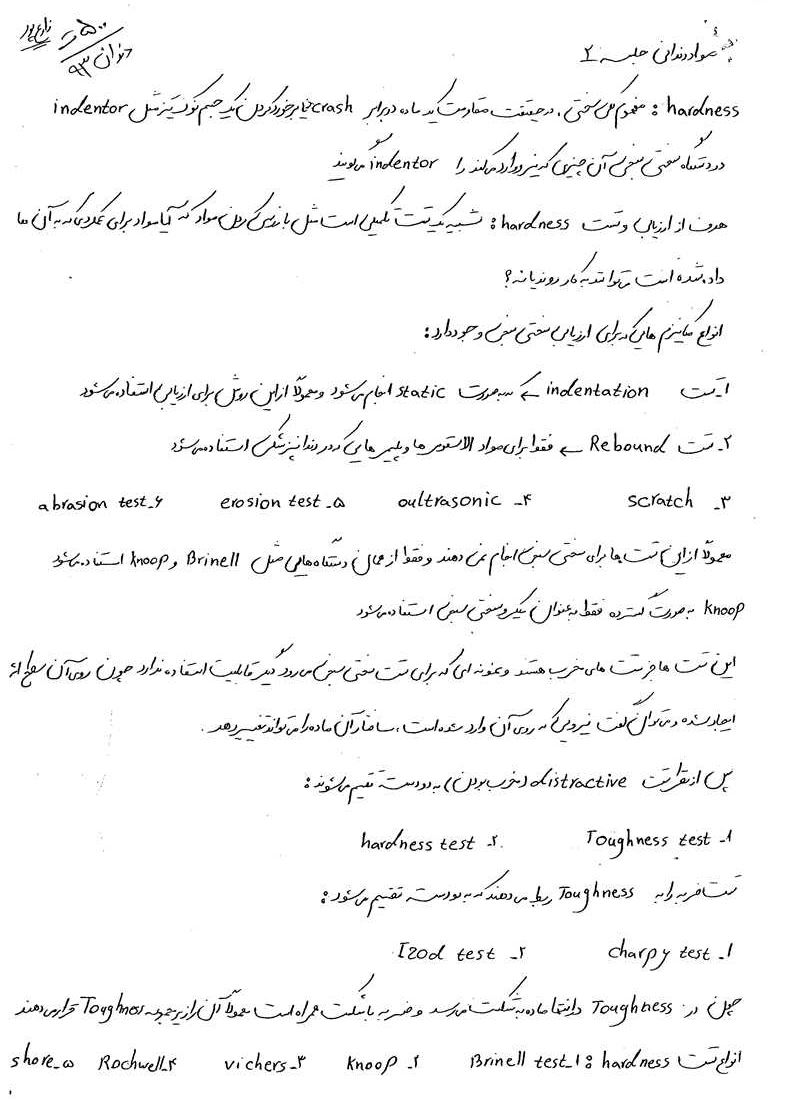 مواد دندانی جلسه ۲
۵۰۰ ت
۹۳
hardness : مفهوم کلی سختی، در حقیقت مقاومت یک ماده در برابر crash یا برخورد کردن یک جسم نوک تیز مثل indentor
در دستگاه سختی سنجی آن چیزی که نیرو وارد می‌کند را indentor می‌گویند
هدف از ارزیابی و تست hardness : شبیه یک تست تکمیلی است مثل بازرسی کردن مواد که آیا مواد برای عملکردی که به آن ها
داده شده است می‌توانند به کار روند یا نه؟
انواع مکانیزم هایی که برای ارزیابی سختی سنجی وجود دارد:
۱- تست indentation ← به صورت static انجام می‌شود و معمولاً از این روش برای ارزیابی استفاده می‌شود
۲- تست Rebound ← فقط برای مواد الاستومر ها و پلیمر هایی که در دندانپزشکی استفاده می‌شود
۳- scratch ۴- oultrasonic ۵- erosion test ۶- abrasion test
معمولاً از این تست ها برای سختی سنجی انجام نمی دهند و فقط از همان دستگاه هایی مثل Brinell و knoop استفاده می‌شود
knoop به صورت گسترده فقط به عنوان میکرو سختی سنجی استفاده می‌شود
این تست ها جز تست های مخرب هستند و نمونه ای که برای تست سختی سنجی می‌رود دیگر قابلیت استفاده ندارد چون روی آن سطح اثر
ایجاد شده و می‌توان گفت نیرویی که روی آن وارد شده است، ساختار آن ماده را می‌تواند تغییر دهد.
پس از نظر تست distractive (مخرب بودن) به دو دسته تقسیم می‌شوند:
۱- Toughness test ۲- hardness test
تست ضربه را به Toughness ربط می دهند که به دو دسته تقسیم می‌شود:
۱- charpy test ۲- Izod test
چون در Toughness در انتها ماده به شکست می‌رسد و ضربه با شکست همراه است معمولاً آن را زیر مجموعه Toughness قرار می‌دهند
انواع تست hardness : ۱- Brinell test ۲- knoop ۳- vichers ۴- Rochwell ۵- shore